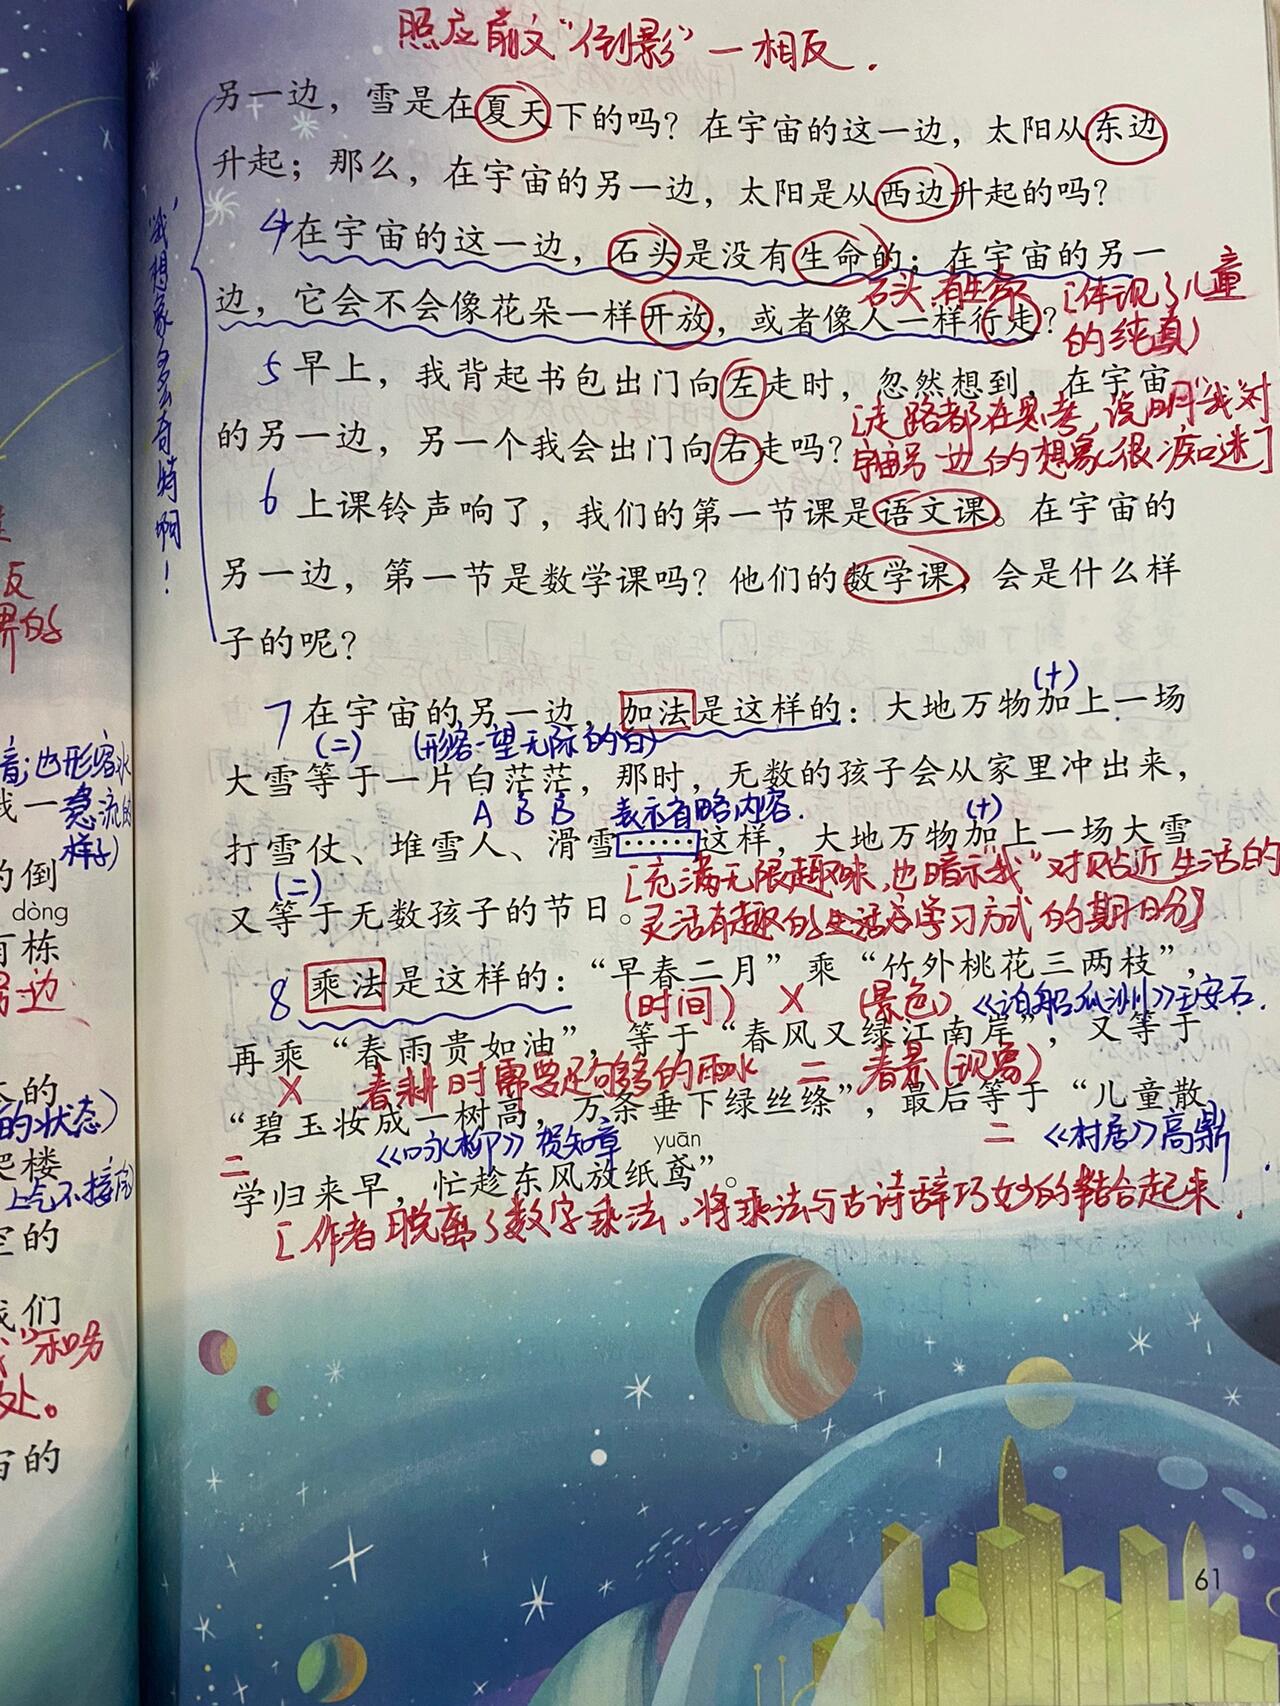 照应前文“倒影”一相反.
另一边，雪是在夏天下的吗？在宇宙的这一边，太阳从东边
升起；那么，在宇宙的另一边，太阳是从西边升起的吗？
4 在宇宙的这一边，石头是没有生命的；在宇宙的另一
石头有生命
[体现了儿童
的纯真)
边，它会不会像花朵一样开放，或者像人一样行走？
5 早上，我背起书包出门向左走时，忽然想到，在宇宙
[走路都在思考，说明“我”对
的另一边，另一个我会出门向右走吗？
宇宙另一边的想象很痴迷]
6 上课铃声响了，我们的第一节课是语文课。在宇宙的
另一边，第一节是数学课吗？他们的数学课，会是什么样
子的呢？
“我”想象多么奇特啊！
(十)
7 在宇宙的另一边，加法是这样的：大地万物加上一场
(二) (形容一望无际的白)
大雪等于一片白茫茫，那时，无数的孩子会从家里冲出来，
A B B 表示省略内容. (十)
打雪仗、堆雪人、滑雪……这样，大地万物加上一场大雪
(二) [充满无限趣味，也暗示“我”对贴近生活的
又等于无数孩子的节日。
灵活有趣的生活与学习方式的期盼]
8 乘法是这样的：“早春二月”乘“竹外桃花三两枝”，
(时间) × (景色) 《泊船瓜洲》王安石.
再乘“春雨贵如油”，等于“春风又绿江南岸”，又等于
× 春耕时需要足够多的雨水 二 春景(现象)
“碧玉妆成一树高，万条垂下绿丝绦”，最后等于“儿童散
二 《咏柳》贺知章 yuān 二 《村居》高鼎
学归来早，忙趁东风放纸鸢”。
[作者脱离了数字乘法，将乘法与古诗辞巧妙的结合起来.
61
反
界的
音；也形容水
急流的
样子)
的倒
dòng
有栋
另一边
的
的状态)
爬楼
上气不接
空的
我们
和另
处。
宙的